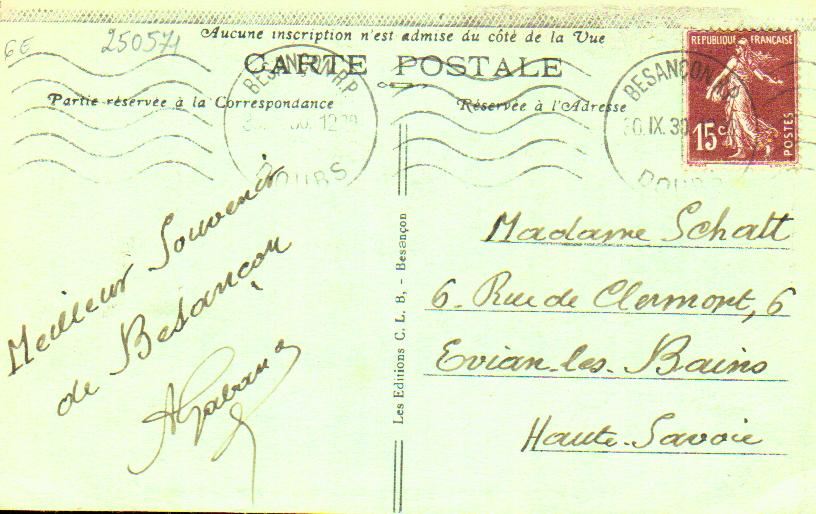 6E
250571
Aucune inscription n'est admise du côté de la Vue
CARTE POSTALE
Partie réservée à la Correspondance
Réservée à l'Adresse
BESANÇON R.P.
DOUBS
BESANÇON R.P.
30.IX.30
DOUBS
REPUBLIQUE FRANÇAISE
15c
POSTES
Meilleur Souvenir
de Besançon
Les Editions C. L. B, - Besançon
Madame Schalt
6. Rue de Clermont, 6
Evian-les-Bains
Haute-Savoie